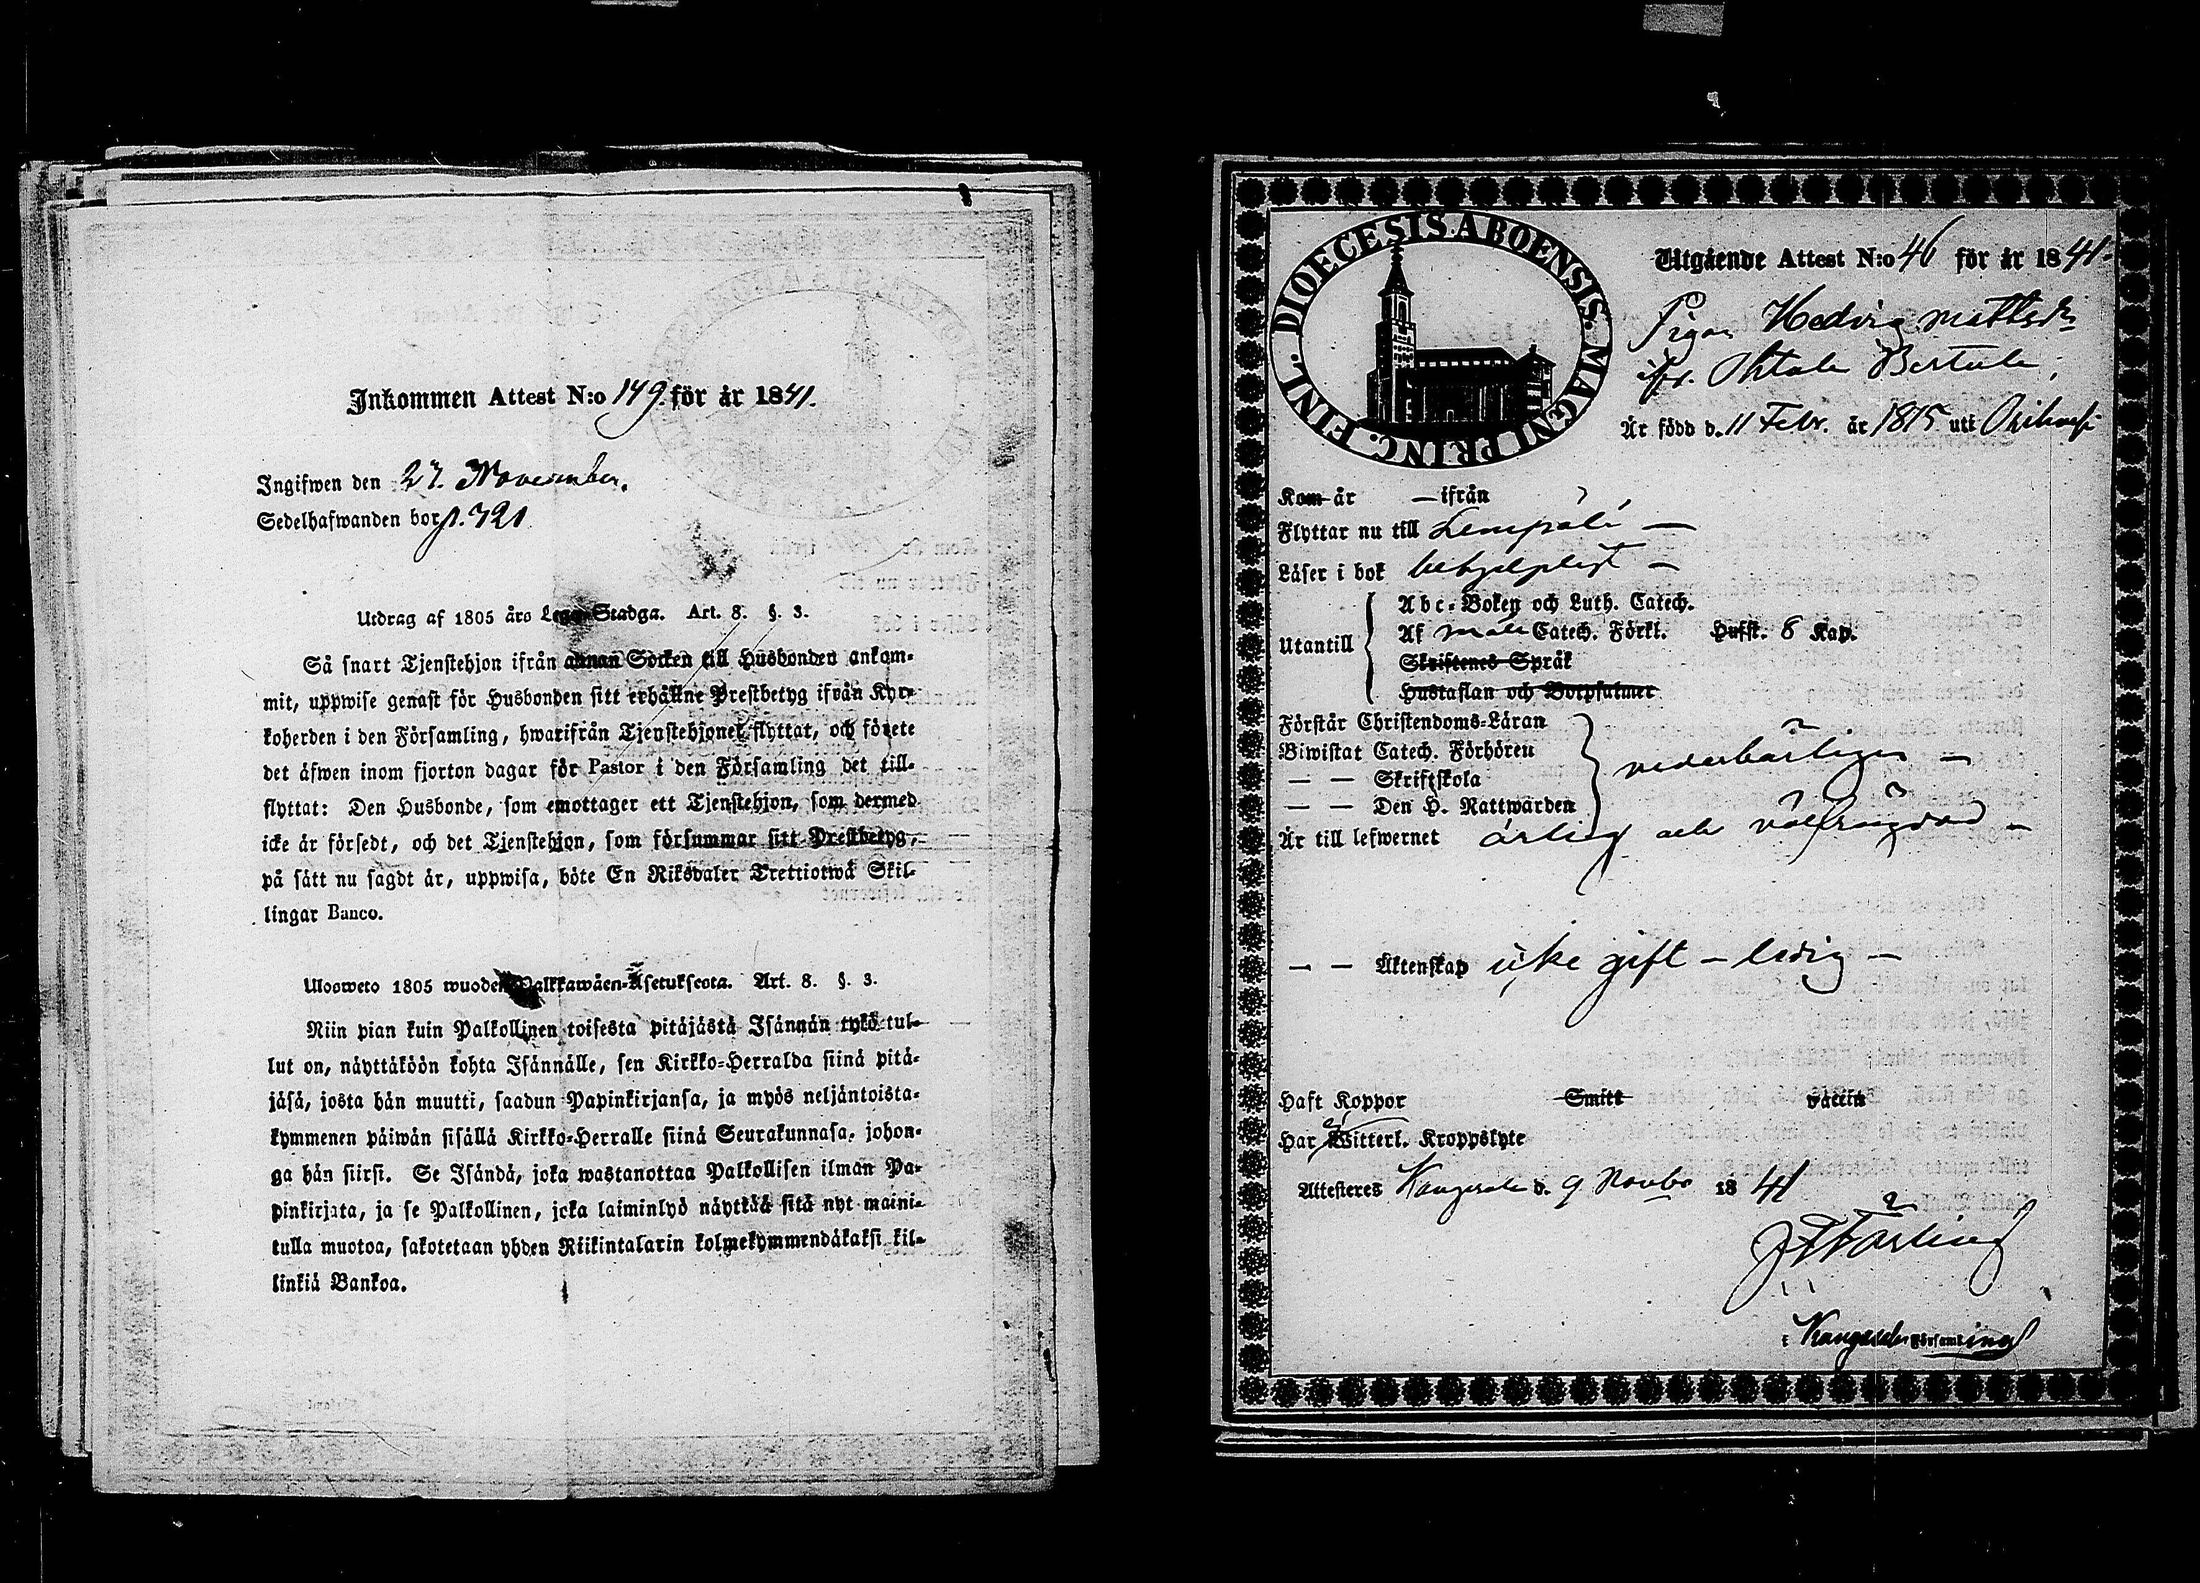 Inkommen Attest N:o 149. för år 1841.
Ingifwen den 27. November.
Sedelhafwanden bor p. 721
Utdrag af 1805 års Lego-Stadga. Art. 8. §. 3.
Så snart Tjenstehjon ifrån annan Socken till Husbonden ankom-
mit, uppwise genast för Husbonden sitt erhållne Prestbetyg ifrån Kyr-
koherden i den Församling, hwarifrån Tjenstehjonet flyttat, och förete
det äfwen inom fjorton dagar för Pastor i den Församling det till-
flyttat: Den Husbonde, som emottager ett Tjenstehjon, som dermed
icke är försedt, och det Tjenstehjon, som försummar sitt Prestbetyg,
på sätt nu sagdt är, uppwisa, böte En Riksdaler Trettiotwå Skil-
lingar Banco.
Ulosweto 1805 wuoden Palkkawäen-Asetuksesta. Art. 8. §. 3.
Niin pian kuin Palkollinen toisesta pitäjästä Isännän tykö tul-
lut on, näyttäköön kohta Isännälle, sen Kirkko-Herralda siinä pitä-
jäsä, josta hän muutti, saadun Papinkirjansa, ja myös neljäntoista-
kymmenen päiwän sisällä Kirkko-Herralle siinä Seurakunnasa, johon-
ga hän siirsi. Se Isändä, joka wastanottaa Palkollisen ilman Pa-
pinkirjata, ja se Palkollinen, joka laiminlyö näyttää sitä nyt maini-
tulla muotoa, sakotetaan yhden Riikintalarin kolmekymmendäkaksi kil-
linkiä Bankoa.
DIOECESIS ABOENSIS. MAGNI PRINC. FINL.
Utgående Attest N:o 46 för år 1841.
Pigan Hedvig Mattsdr
ifr. Ohtola Bertula,
Är född d. 11 Febr. år 1815 uti Orihvesi
Kom år — ifrån
Flyttar nu till Lempälä —
Läser i bok behjelpligt —
Abc-Boken och Luth. Catech.
Utantill Af Catech. Förkl. Hufst. 8 Kap.
Skriftenes Språk
Hustaflan och Botpsalmer
Förstår Christendoms-Läran
Biwistat Catech. Förhören vederbörligen —
— — Skriftskola
— — Den H. Nattwarden
Är till lefwernet ärlig och välfrägdad —
— — Äktenskap icke gift — ledig —
Haft Koppor Smitt vaccin
Har Witterl. Kroppslyte
Attesteres Kangasala d. 9 Novbr 1841
i Kangasala Församling